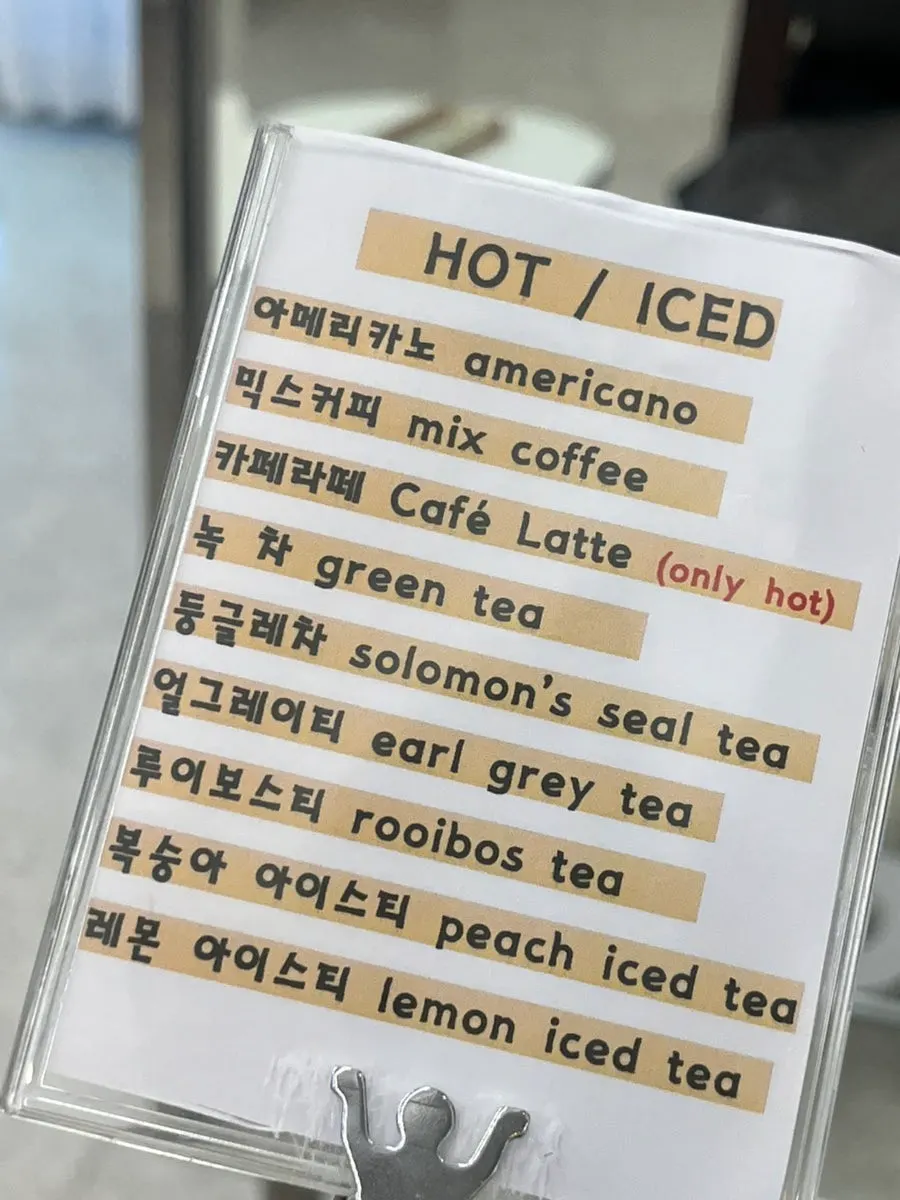 HOT / ICED
아메리카노 americano
믹스커피 mix coffee
카페라떼 Café Latte (only hot)
녹 차 green tea
둥글레차 solomon's seal tea
얼그레이티 earl grey tea
루이보스티 rooibos tea
복숭아 아이스티 peach iced tea
레몬 아이스티 lemon iced tea